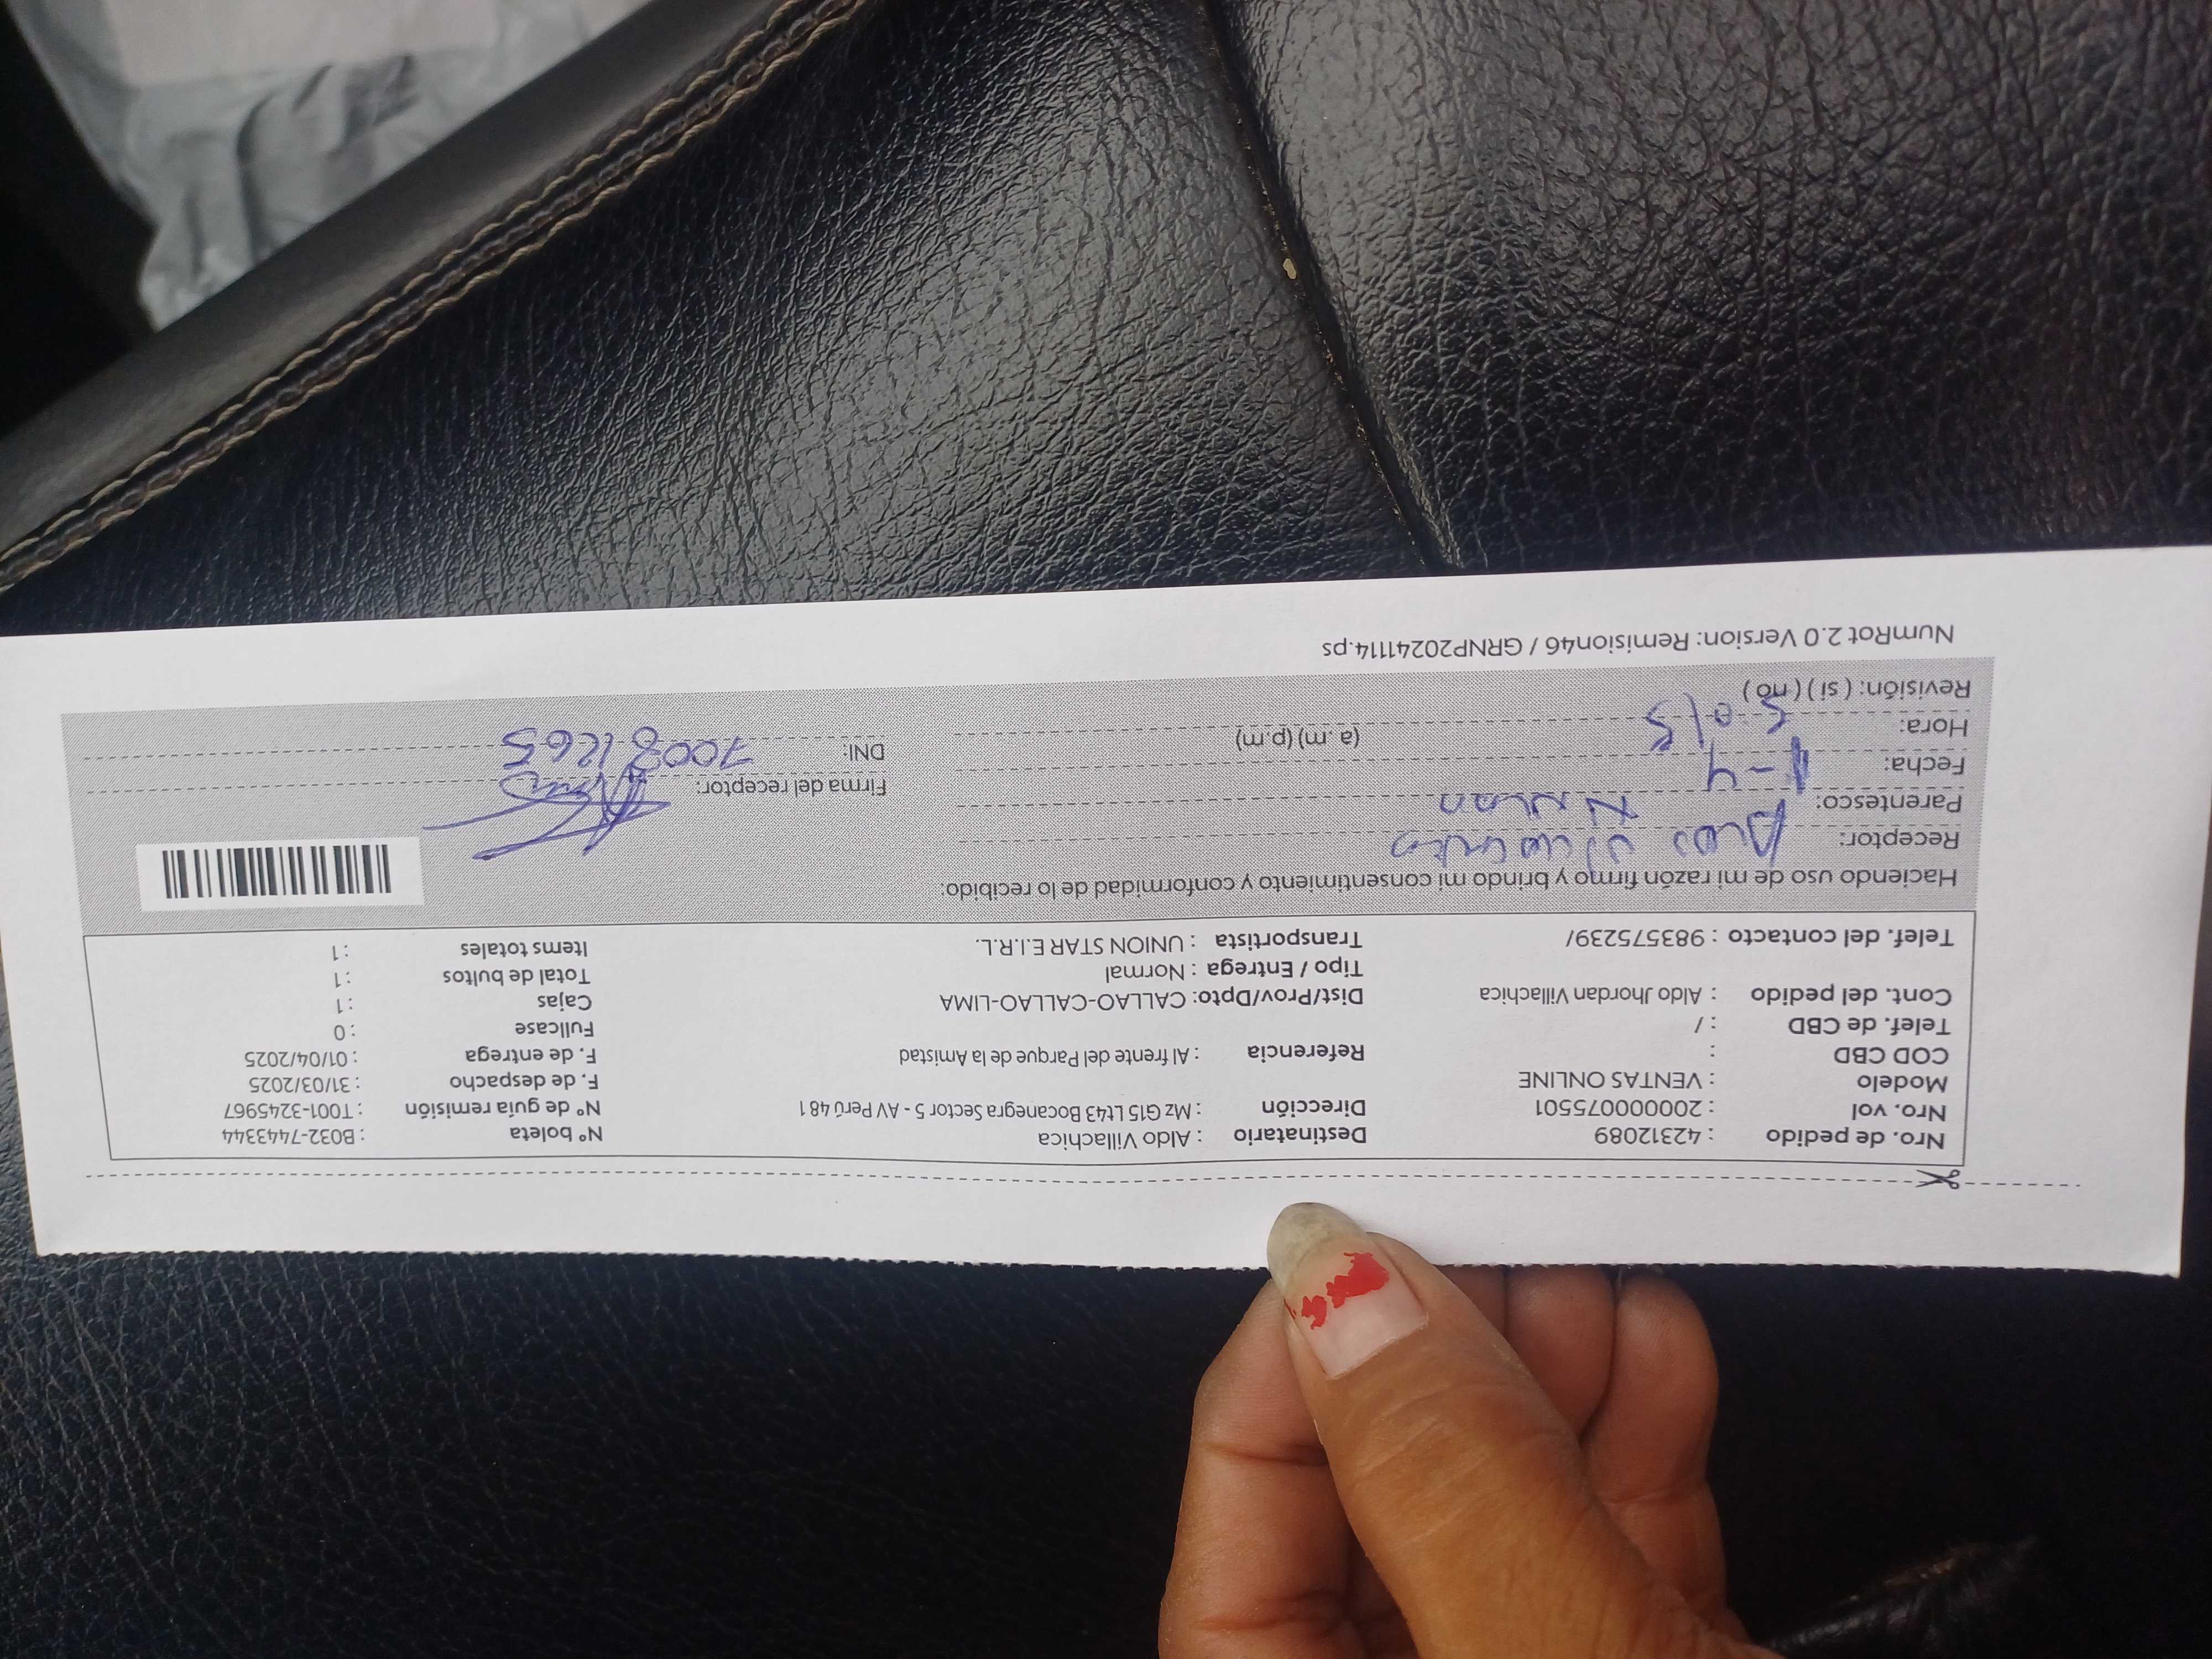 Nro. de pedido : 42312089 Destinatario : Aldo Villachica Nº boleta : B032-7443344
Nro. vol : 20000075501 Dirección : Mz G15 Lt43 Bocanegra Sector 5 - AV Perú 481 Nº de guía remisión : T001-3245967
Modelo : VENTAS ONLINE F. de despacho : 31/03/2025
COD CBD : Referencia : Al frente del Parque de la Amistad F. de entrega : 01/04/2025
Telef. de CBD : / Fullcase : 0
Cont. del pedido : Aldo Jhordan Villachica Dist/Prov/Dpto: CALLAO-CALLAO-LIMA Cajas : 1
Tipo / Entrega : Normal Total de bultos : 1
Telef. del contacto : 983575239/ Transportista : UNION STAR E.I.R.L. Items totales : 1
Haciendo uso de mi razón firmo y brindo mi consentimiento y conformidad de lo recibido:
Receptor:
Parentesco: Firma del receptor:
Fecha: 1-4
Hora: (a. m) (p.m) DNI: 70081265
Revisión: ( si ) ( no )
NumRot 2.0 Version: Remision46 / GRNP20241114.ps